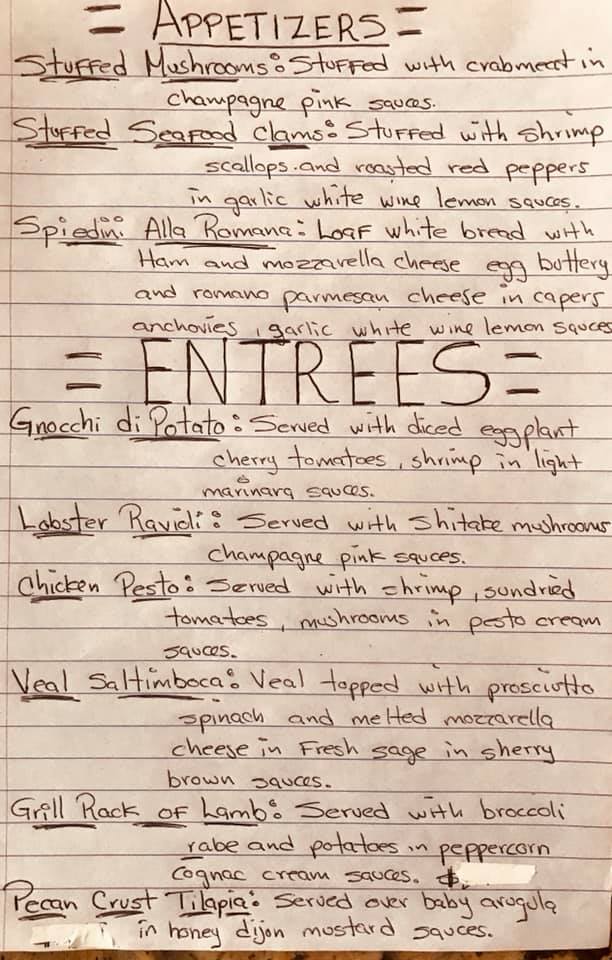 = APPETIZERS =
Stuffed Mushrooms: Stuffed with crabmeat in
champagne pink sauces.
Stuffed Seafood Clams: Stuffed with shrimp
scallops and roasted red peppers
in garlic white wine lemon sauces.
Spiedini Alla Romana: Loaf white bread with
Ham and mozzarella cheese egg buttery
and romano parmesan cheese in capers
anchovies, garlic white wine lemon sauces
= ENTREES =
Gnocchi di Potato: Served with diced eggplant
cherry tomatoes, shrimp in light
marinara sauces.
Lobster Ravioli: Served with Shitake mushrooms
champagne pink sauces.
Chicken Pesto: Served with shrimp, sundried
tomatoes, mushrooms in pesto cream
sauces.
Veal Saltimboca: Veal topped with prosciutto
spinach and melted mozzarella
cheese in Fresh sage in sherry
brown sauces.
Grill Rack OF Lamb: Served with broccoli
rabe and potatoes in peppercorn
cognac cream sauces. $
Pecan Crust Tilapia: Served over baby arugula
in honey dijon mustard sauces.